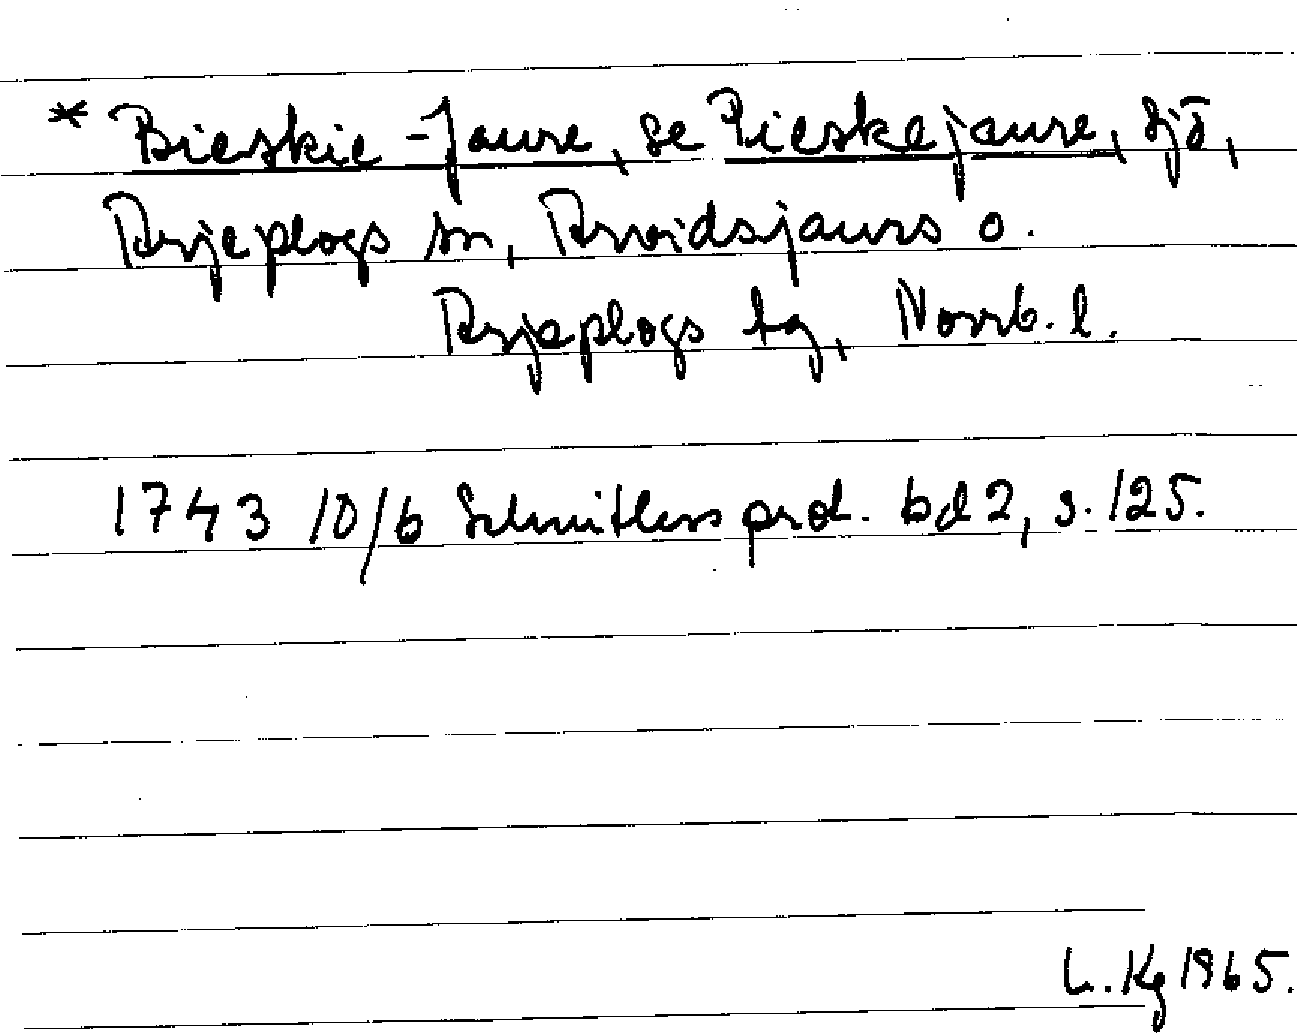 * Bieskie-Jaure, se Pieskejaure, sjö,
Arjeplogs sn, Arvidsjaurs o.
Arjeplogs tg, Norrb. l.
1743 10/6 Schnitlers prot. bd 2, s. 125.
L. Kg 1965.